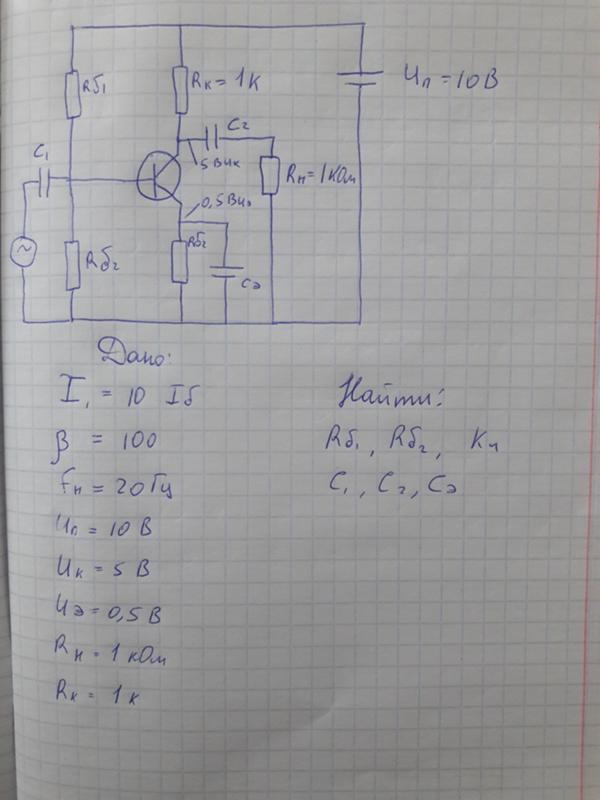 Rδ1
Rк = 1к
Uп = 10В
C1
C2
5В Uк
Rн = 1кОм
0,5В Uэ
Rδ2
Rδ2
Cэ
Дано:
I1 = 10 Iδ
β = 100
fн = 20Гц
Uп = 10 В
Uк = 5 В
Uэ = 0,5 В
Rн = 1 кОм
Rк = 1 к
Найти:
Rδ1, Rδ2, Kи
C1, C2, Cэ